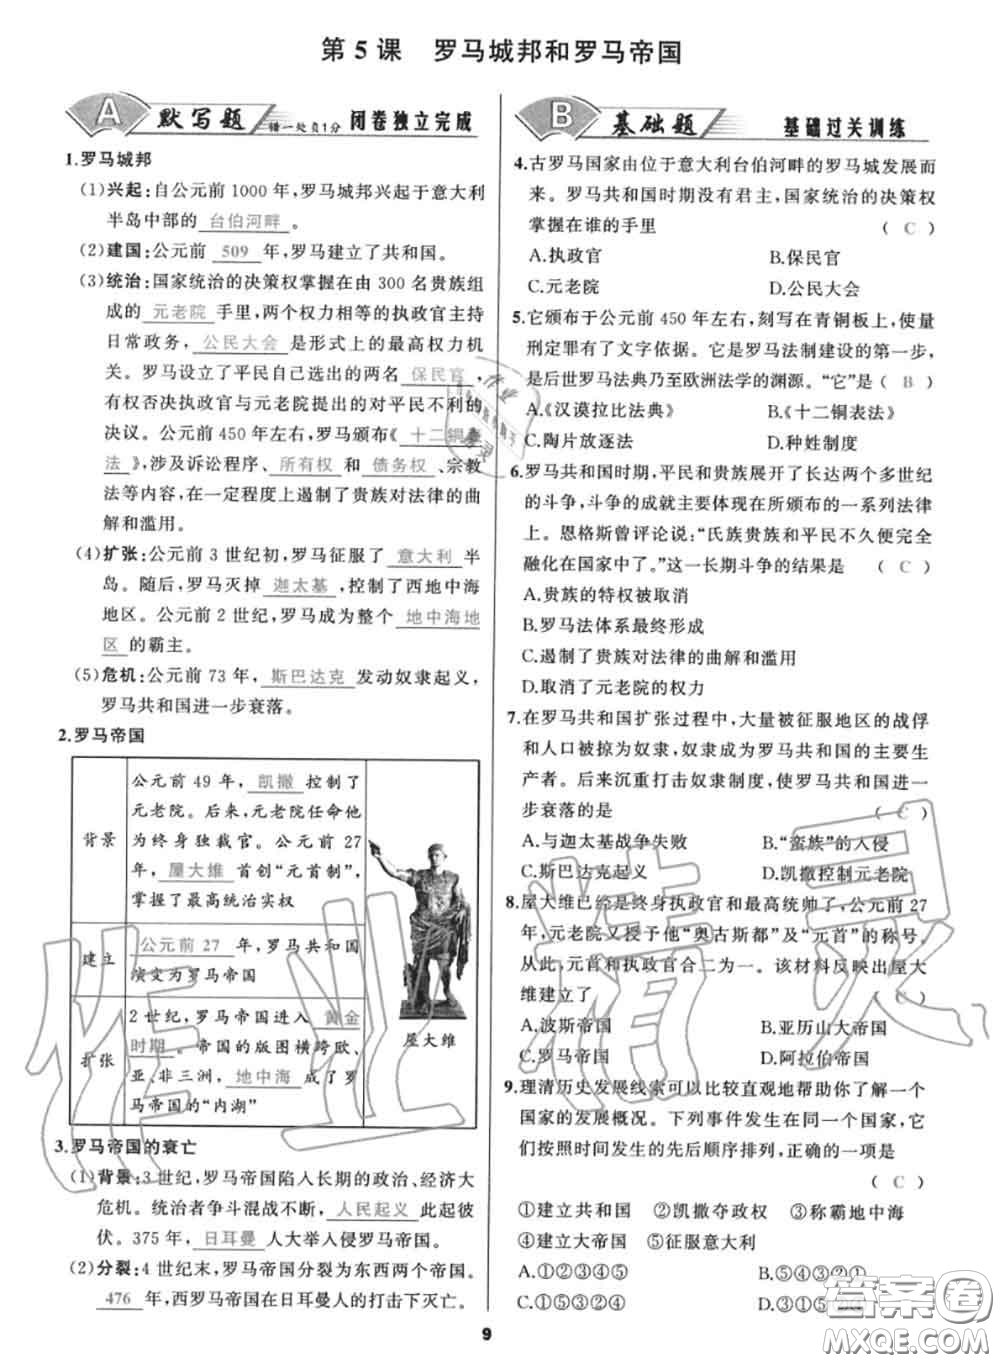 第 5 课 罗马城邦和罗马帝国
A 默写题 错一处负1分 闭卷独立完成
1.罗马城邦
(1)兴起:自公元前 1000 年,罗马城邦兴起于意大利
半岛中部的 台伯河畔 。
(2)建国:公元前 509 年,罗马建立了共和国。
(3)统治:国家统治的决策权掌握在由 300 名贵族组
成的 元老院 手里,两个权力相等的执政官主持
日常政务, 公民大会 是形式上的最高权力机
关。罗马设立了平民自己选出的两名 保民官 ,
有权否决执政官与元老院提出的对平民不利的
决议。公元前 450 年左右,罗马颁布《 十二铜表
法 》,涉及诉讼程序、 所有权 和 债务权 、宗教
法等内容,在一定程度上遏制了贵族对法律的曲
解和滥用。
(4)扩张:公元前 3 世纪初,罗马征服了 意大利 半
岛。随后,罗马灭掉 迦太基 ,控制了西地中海
地区。公元前 2 世纪,罗马成为整个 地中海地
区 的霸主。
(5)危机:公元前 73 年, 斯巴达克 发动奴隶起义,
罗马共和国进一步衰落。
2.罗马帝国
背景
公元前 49 年, 凯撒 控制了
元老院。后来,元老院任命他
为终身独裁官。公元前 27
年, 屋大维 首创“元首制”,
掌握了最高统治实权
建立
公元前 27 年,罗马共和国
演变为罗马帝国
扩张
2 世纪,罗马帝国进入 黄金
时期 。帝国的版图横跨欧、
亚、非三洲, 地中海 成了罗
马帝国的“内湖”
屋大维
3.罗马帝国的衰亡
(1)背景:3 世纪,罗马帝国陷入长期的政治、经济大
危机。统治者争斗混战不断, 人民起义 此起彼
伏。375 年, 日耳曼 人大举入侵罗马帝国。
(2)分裂:4 世纪末,罗马帝国分裂为东西两个帝国。
476 年,西罗马帝国在日耳曼人的打击下灭亡。
B 基础题 基础过关训练
4.古罗马国家由位于意大利台伯河畔的罗马城发展而
来。罗马共和国时期没有君主,国家统治的决策权
掌握在谁的手里 ( C )
A.执政官 B.保民官
C.元老院 D.公民大会
5.它颁布于公元前 450 年左右,刻写在青铜板上,使量
刑定罪有了文字依据。它是罗马法制建设的第一步,
是后世罗马法典乃至欧洲法学的渊源。“它”是 ( B )
A.《汉谟拉比法典》 B.《十二铜表法》
C.陶片放逐法 D.种姓制度
6.罗马共和国时期,平民和贵族展开了长达两个多世纪
的斗争,斗争的成就主要体现在所颁布的一系列法律
上。恩格斯曾评论说:“氏族贵族和平民不久便完全
融化在国家中了。”这一长期斗争的结果是 ( C )
A.贵族的特权被取消
B.罗马法体系最终形成
C.遏制了贵族对法律的曲解和滥用
D.取消了元老院的权力
7.在罗马共和国扩张过程中,大量被征服地区的战俘
和人口被掠为奴隶,奴隶成为罗马共和国的主要生
产者。后来沉重打击奴隶制度,使罗马共和国进一
步衰落的是 ( C )
A.与迦太基战争失败 B.“蛮族”的入侵
C.斯巴达克起义 D.凯撒控制元老院
8.屋大维已经是终身执政官和最高统帅了,公元前 27
年,元老院又授予他“奥古斯都”及“元首”的称号。
从此,元首和执政官合二为一。该材料反映出屋大
维建立了 ( C )
A.波斯帝国 B.亚历山大帝国
C.罗马帝国 D.阿拉伯帝国
9.理清历史发展线索可以比较直观地帮助你了解一个
国家的发展概况。下列事件发生在同一个国家,它
们按照时间发生的先后顺序排列,正确的一项是
( C )
①建立共和国 ②凯撒夺政权 ③称霸地中海
④建立大帝国 ⑤征服意大利
A.①②③④⑤ B.⑤④③②①
C.①⑤③②④ D.
9
作业精灵
答案圈
MXQE.COM